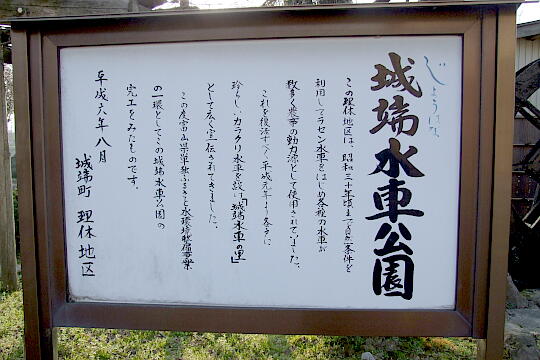 じょうはな
城端水車公園
この理休地区は、昭和三十年頃まで自然条件を
利用してラセン水車をはじめ各種の水車が
数多く農事の動力源として使用されていました。
これを復活すべく平成元年より冬々に
珍らしいカラクリ水車を設け「城端水車の里」
として広く宣伝されてきました。
この度富山県単独ふるさと水環境整備事業
の一環としてこの城端水車公園の
完工をみたものです。
平成六年八月
城端町 理休地区